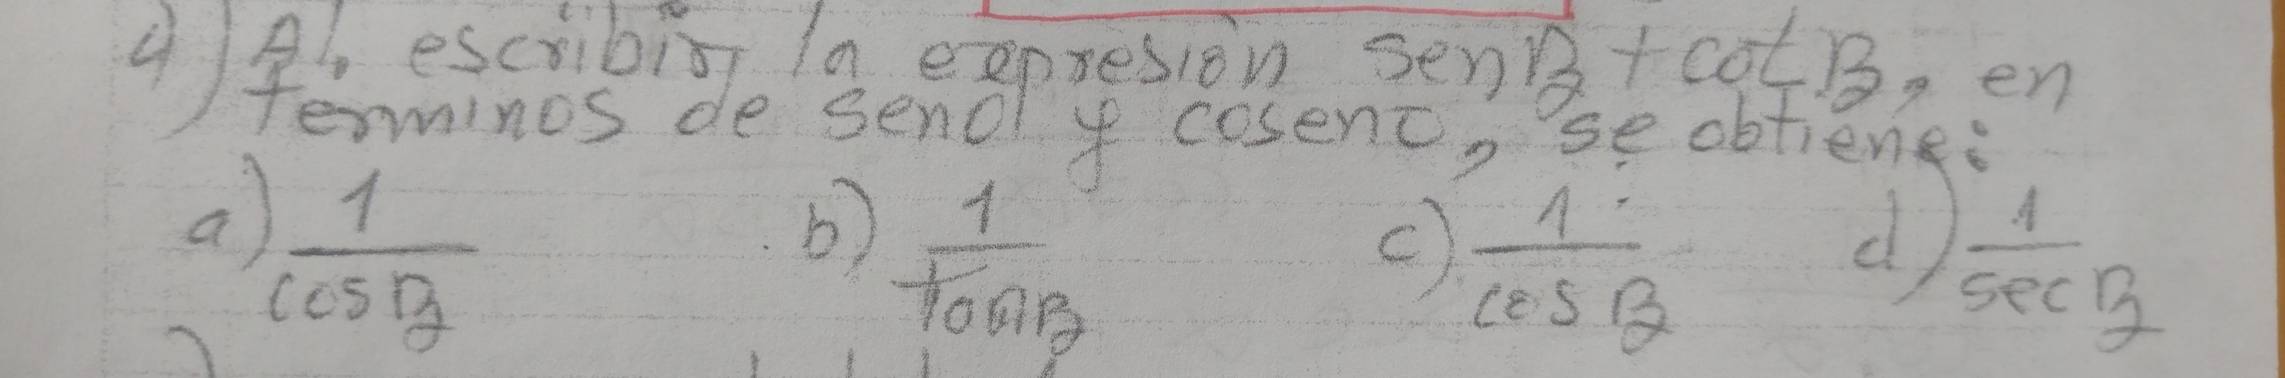 4) Al escribir la expresión senB + cotB, en
terminos de seno y coseno, se obtiene:
a) 1/cosB b) 1/tanB c) 1/cosB d) 1/secB